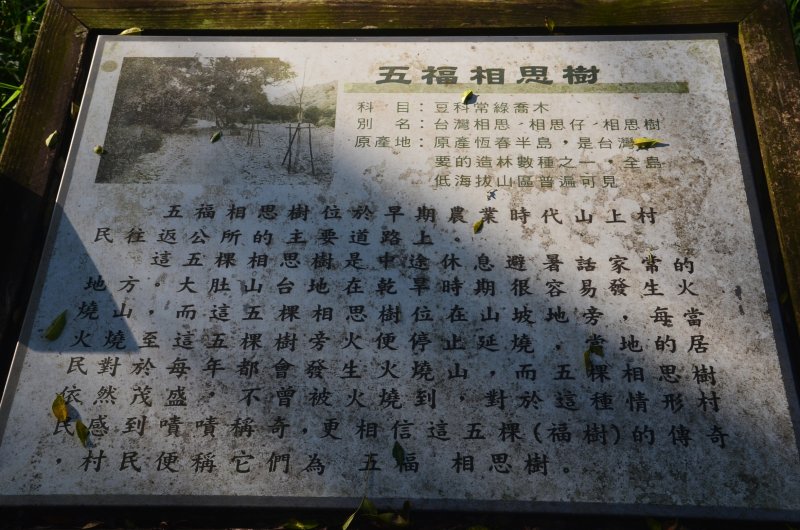 五福相思樹
科 目：豆科常綠喬木
別 名：台灣相思、相思仔、相思樹
原產地：原產恆春半島，是台灣
要的造林數種之一，全島
低海拔山區普遍可見
五福相思樹位於早期農業時代山上村
民往返公所的主要道路上。
這五棵相思樹是中途休息避暑話家常的
地方。大肚山台地在乾旱時期很容易發生火
燒山，而這五棵相思樹位在山坡地旁，每當
火燒至這五棵樹旁火便停止延燒，當地的居
民對於每年都會發生火燒山，而五棵相思樹
依然茂盛，不曾被火燒到，對於這種情形村
民感到嘖嘖稱奇，更相信這五棵(福樹)的傳奇
，村民便稱它們為 五福 相思樹。